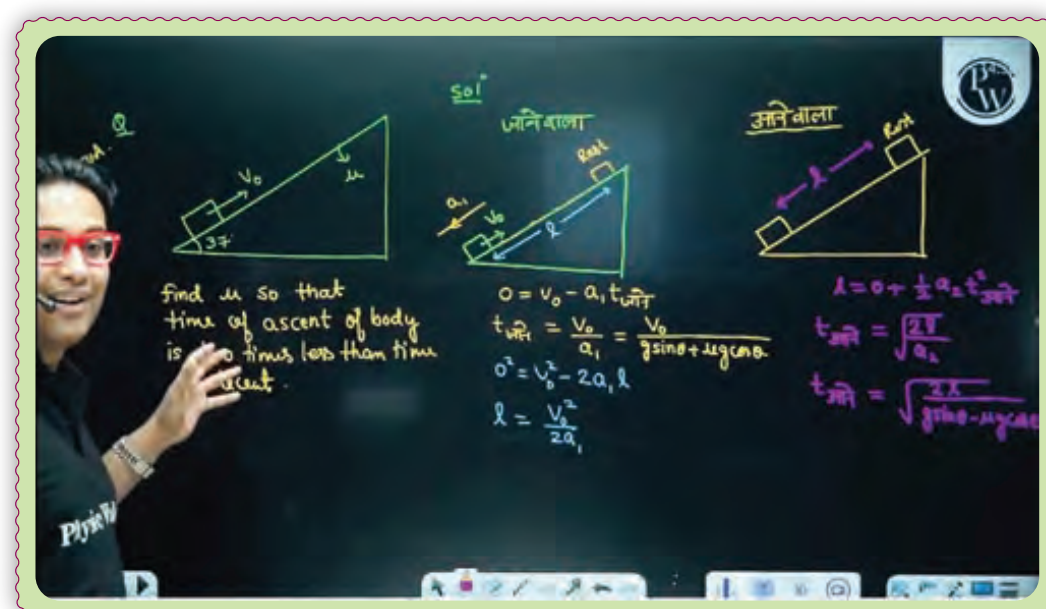 Q
V₀
μ
37
find μ so that
time of ascent of body
is times less than time
Solⁿ
जाने वाला
Rest
a₁
V₀
l
0 = V₀ - a₁ tजाने
tजाने = V₀/a₁ = V₀/(gsinθ + μgcosθ)
0² = V₀² - 2a₁l
l = V₀²/2a₁
आने वाला
Rest
l
l = 0 + ½ a₂ t²आने
tआने = √(2l/a₂)
tआने = √(2l/(gsinθ - μgcosθ))
P W